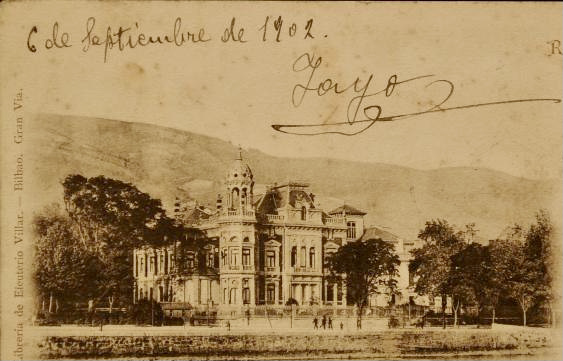 6 de Septiembre de 1902.
Zayo
R
abrería de Eleuterio Villar. — Bilbao. Gran Vía.